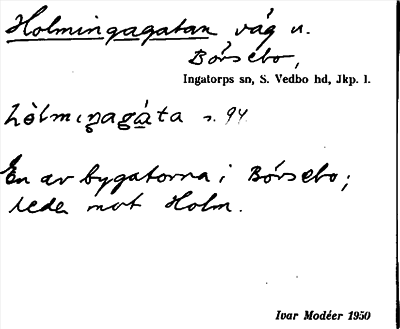 Holmingagatan väg u.
Börsebo,
Ingatorps sn, S. Vedbo hd, Jkp. l.
s. 94
En av bygatorna i Börsebo;
leder mot Holm.
Ivar Modéer 1950